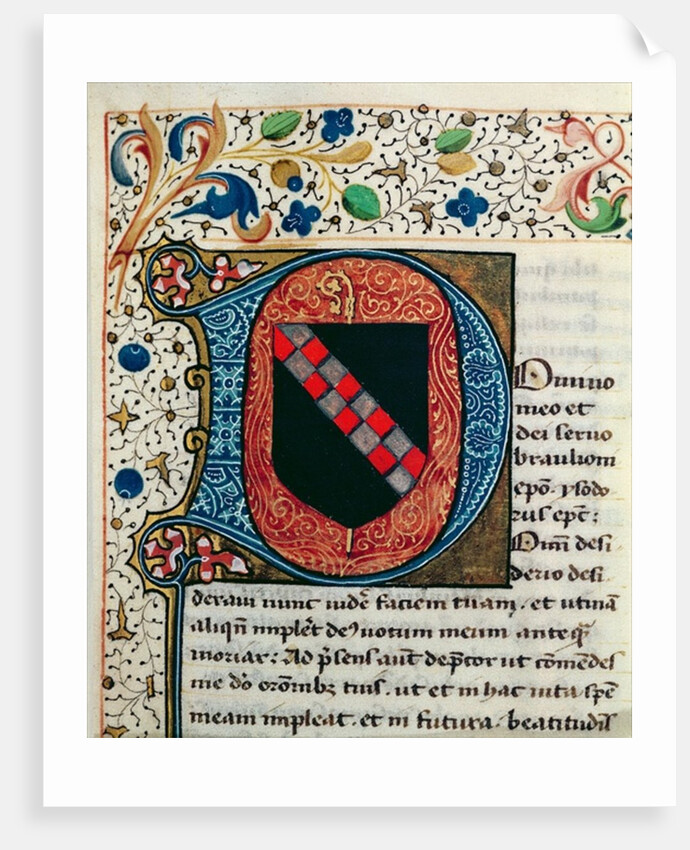 Domino
meo et
dei servo
braulioni
epo. ysido
rus epc:
Omi desi
derio desi
deravi nunc videre faciem tuam. et utinam
aliqn implet deus votum meum anteqm
moriar: Ad psens aut depcor ut comendes
me do oronibz tuis. ut et in hac vita spem
meam impleat. et in futura. beatitudis